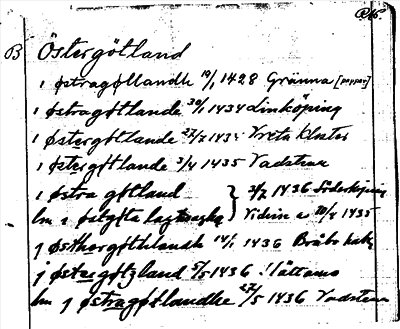 B Östergötland
i østragøtlandh 19/1 1428 Gränna [papper]
i østragøtlande 30/1 1434 Linköping
i østergøtlande 27/7 143 Vreta Kloster
i østergøtlande 3/4 1435 Vadstena
i østra gøtland } 3/2 1436 Söderköping
i østgøta 1435
j østhergøthlandh 14/1 1436 Bråbo
j østergøtzland 5/5 1436
j østragøtlandhe 27/5 1436 Vadstena